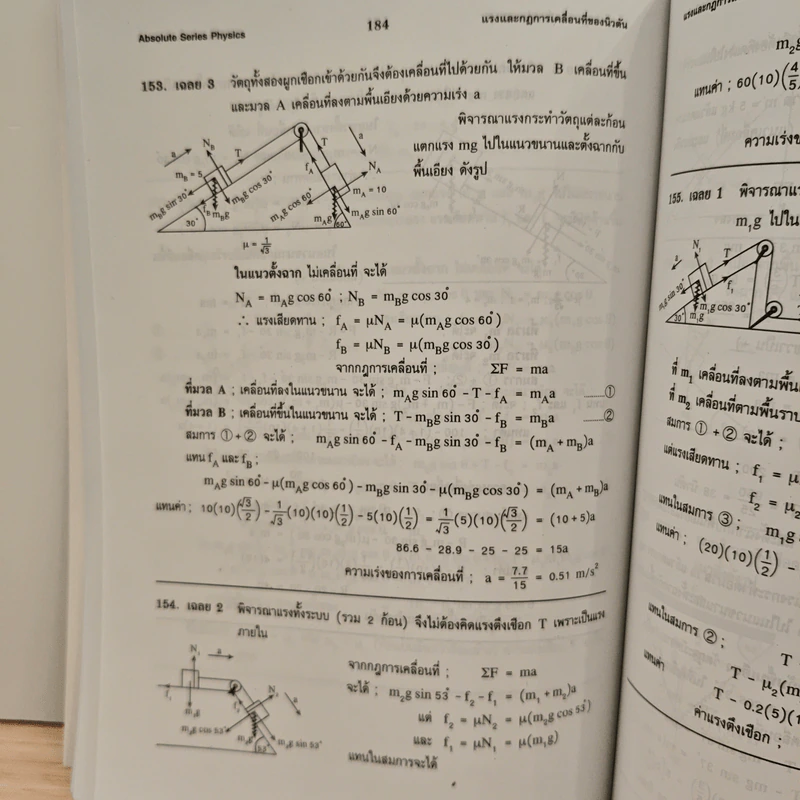 Absolute Series Physics
184
แรงและกฎการเคลื่อนที่ของนิวตัน
153. เฉลย 3 วัตถุทั้งสองผูกเชือกเข้าด้วยกันจึงต้องเคลื่อนที่ไปด้วยกัน ให้มวล B เคลื่อนที่ขึ้น
และมวล A เคลื่อนที่ลงตามพื้นเอียงด้วยความเร่ง a
พิจารณาแรงกระทำวัตถุแต่ละก้อน
แตกแรง mg ไปในแนวขนานและตั้งฉากกับ
พื้นเอียง ดังรูป
a
N_B
T
T
a
f_A
N_A
m_B = 5
m_A = 10
m_Bg sin 30°
f_B
m_Bg
m_Bg cos 30°
m_Ag cos 60°
m_Ag
m_Ag sin 60°
30°
60°
μ = 1/√3
ในแนวตั้งฉาก ไม่เคลื่อนที่ จะได้
N_A = m_Ag cos 60° ; N_B = m_Bg cos 30°
∴ แรงเสียดทาน ; f_A = μN_A = μ(m_Ag cos 60°)
f_B = μN_B = μ(m_Bg cos 30°)
จากกฎการเคลื่อนที่ ; ΣF = ma
ที่มวล A ; เคลื่อนที่ลงในแนวขนาน จะได้ ; m_Ag sin 60° - T - f_A = m_Aa ........①
ที่มวล B ; เคลื่อนที่ขึ้นในแนวขนาน จะได้ ; T - m_Bg sin 30° - f_B = m_Ba ........②
สมการ ① + ② จะได้ ; m_Ag sin 60° - f_A - m_Bg sin 30° - f_B = (m_A + m_B)a
แทน f_A และ f_B ;
m_Ag sin 60° - μ(m_Ag cos 60°) - m_Bg sin 30° - μ(m_Bg cos 30°) = (m_A + m_B)a
แทนค่า ; 10(10)(√3/2) - 1/√3(10)(10)(1/2) - 5(10)(1/2) = 1/√3(5)(10)(√3/2) = (10 + 5)a
86.6 - 28.9 - 25 - 25 = 15a
ความเร่งของการเคลื่อนที่ ; a = 7.7/15 = 0.51 m/s²
154. เฉลย 2 พิจารณาแรงทั้งระบบ (รวม 2 ก้อน) จึงไม่ต้องคิดแรงดึงเชือก T เพราะเป็นแรง
ภายใน
N₁
a
f₁
m₁g
N₂
a
m₂g cos 53°
m₂g
53°
m₂g sin 53°
จากกฎการเคลื่อนที่ ; ΣF = ma
จะได้ ; m₂g sin 53° - f₂ - f₁ = (m₁ + m₂)a
แต่ f₂ = μN₂ = μ(m₂g cos 53°)
และ f₁ = μN₁ = μ(m₁g)
แทนในสมการจะได้
m₂g
แทนค่า ; 60(10)(4/5)
ความเร่งข
155. เฉลย 1 พิจารณาแร
m₁g ไปใน
N₁
T
a
f₁
m₁g sin 30°
m₁g cos 30°
m₁g
30°
ที่ m₁ เคลื่อนที่ลงตามพื้น
ที่ m₂ เคลื่อนที่ตามพื้นราบ
สมการ ① + ② จะได้ ;
แต่แรงเสียดทาน ; f₁ = μ
f₂ = μ₂
แทนในสมการ ③ ; m₁g s
แทนค่า ; (20)(10)(1/2) -
แทนในสมการ ② ; T
T - μ₂(m
แทนค่า
T - 0.2(5)(1
ค่าแรงดึงเชือก ;